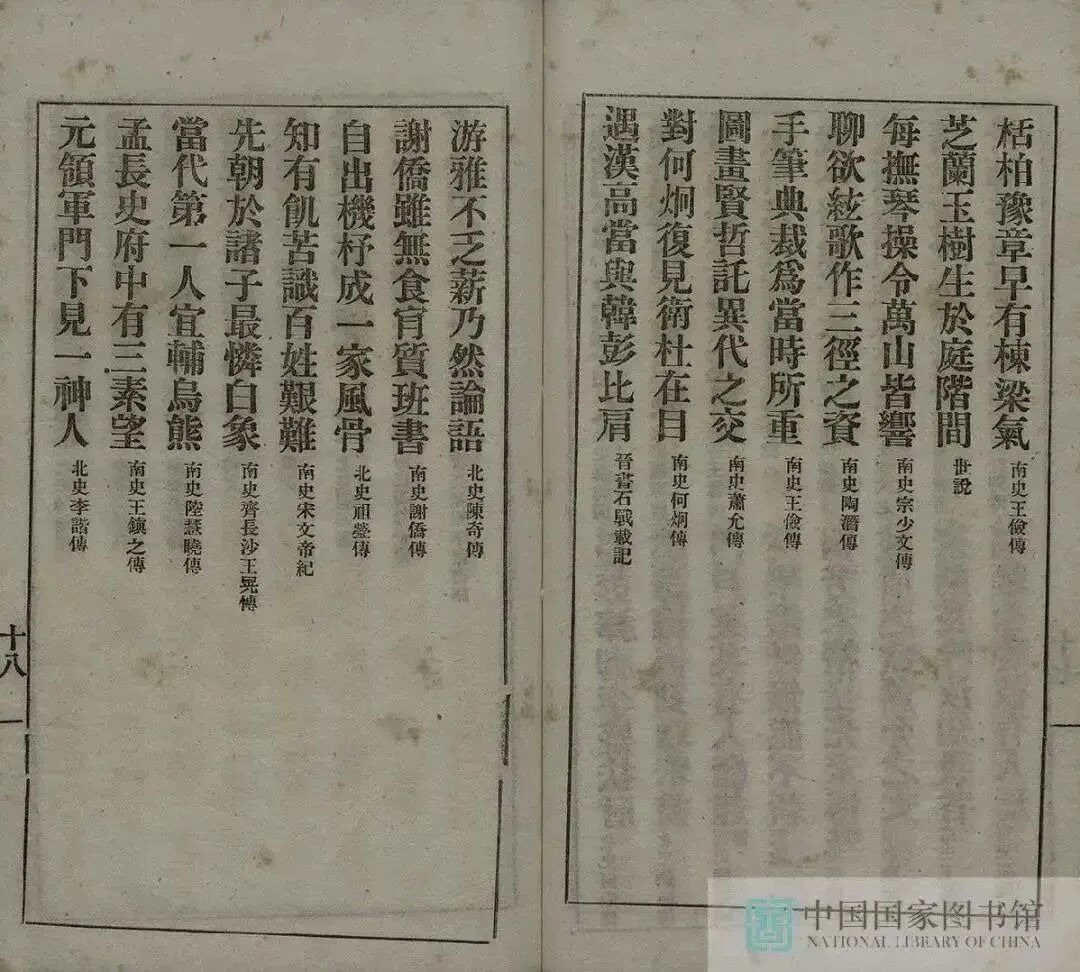 栝柏豫章早有棟梁氣 南史王儉傳
芝蘭玉樹生於庭階間 世說
每撫琴操令萬山皆響 南史宗少文傳
聊欲絃歌作三徑之資 南史陶潛傳
手筆典裁爲當時所重 南史王儉傳
圖畫賢哲託異代之交 南史蕭允傳
對何炯復見衛杜在目 南史何炯傳
遇漢高當與韓彭比肩 晉書石勒載記
游雅不乏薪乃然論語 北史陳奇傳
謝僑雖無食肯質班書 南史謝僑傳
自出機杼成一家風骨 北史祖瑩傳
知有飢苦識百姓艱難 南史宋文帝紀
先朝於諸子最憐白象 南史齊長沙王晃傳
當代第一人宜輔烏熊 南史陸慧曉傳
孟長史府中有三素望 南史王鎮之傳
元領軍門下見一神人 北史李諧傳
十八
中国国家图书馆
NATIONAL LIBRARY OF CHINA